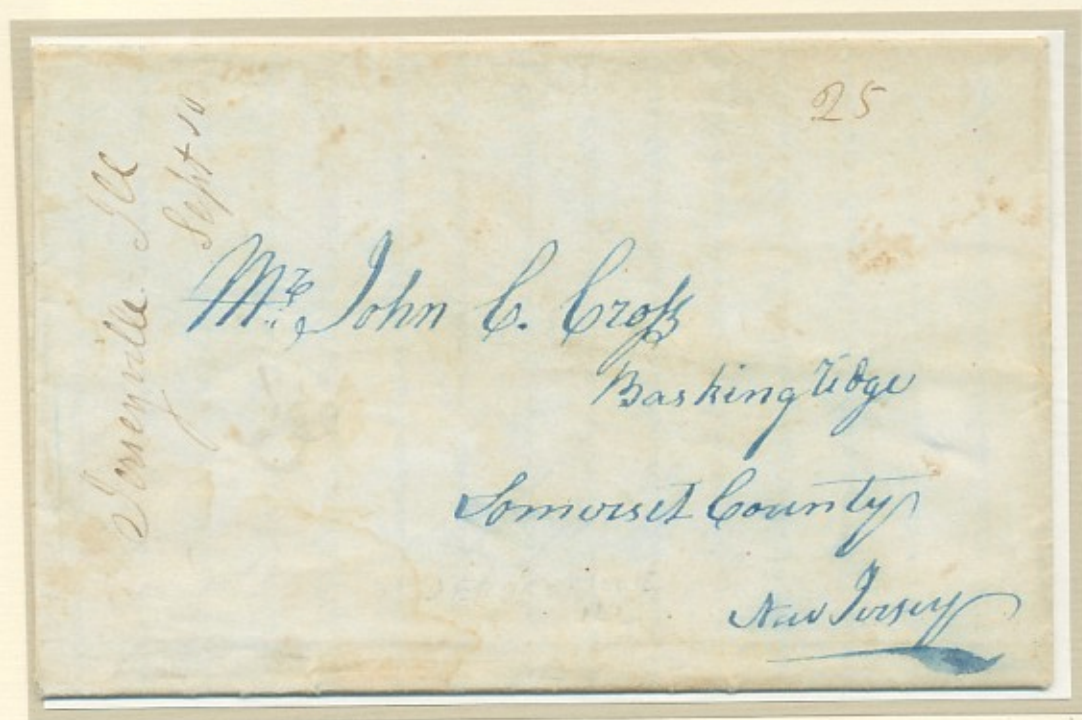 25
Jerseyville Ill
Sept 10
Mr. John C. Cross
Baskingridge
Somerset County
New Jersey